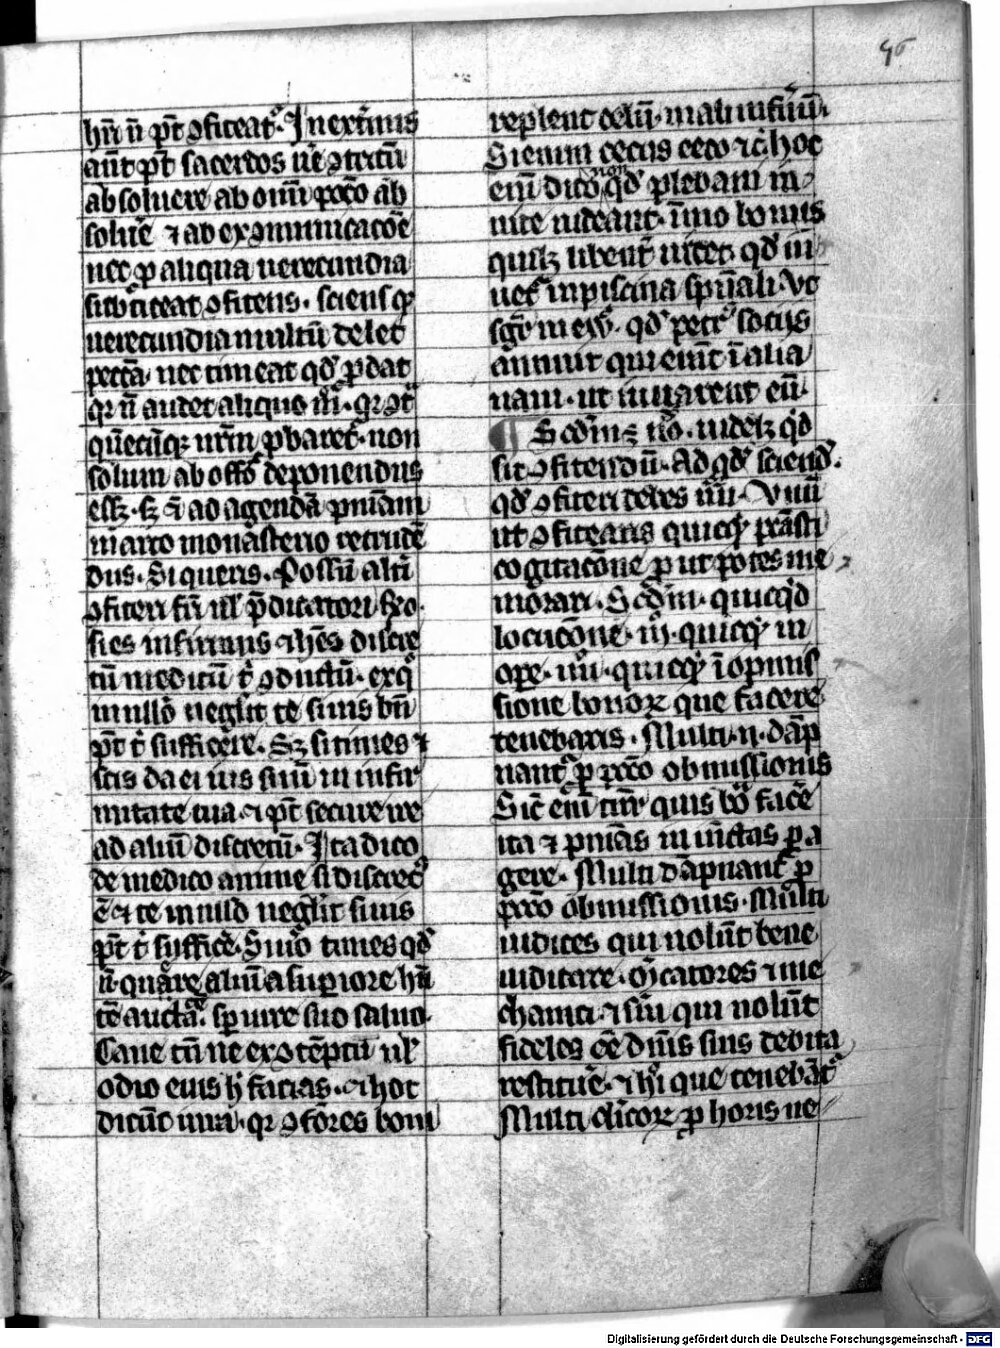 45
hn̄ n̄ pt̄ ꝯficeat᷑. In ext̄mis
aūt pt̄ sacerdos
absoluere ab om̄i pccō ab
solue᷑ ⁊ ab exꝯmunicacōe
nec ꝑ aliqua uerecundia
ꝯfitens. sciens ꝙ
uerecundia multū delet
pccā. nec timeat qđ ꝑdat
qr n̄ audet aliquo mō. qr
ꝑbaret᷑. non
solum ab offō deponendus
eēt. sꝫ ⁊ ad agendā pn̄iam
in arto monasterio retrudē
dus. Si queris. Possū alt̄i
ꝯfiteri fr̄i ul̄ p̄dicatori. Rō.
si es infirmus ⁊ hēs discre
tū medicū t̄ ꝯductū. ex quo
in nullo neglit te si uis bn̄
pt̄ t̄ sufficere. Sꝫ si times ⁊
scis da ei ius suū in infir
mitate tua. ⁊ pt̄ secure ire
ad aliū discretū. Ita dico
de medico anime si discret᷑
ē ⁊ te in nullo neglit si uis
pt̄ t̄ sufficē. Si uō times qđ
n̄. quäre aliū a superiore hn̄
tē auctā. sp̄ iure suo saluo.
Caue tn̄ ne ex ꝯtēptu ul̄
odio eius h̄ facias. ⁊ hoc
dicūt iura. qr ꝯfōres boni
replent celū. mali infernū.
Si enim cecus ceco ⁊c̄. hoc
eni͞ dico non qđ plebani in
uite uideant. īmo bonus
quilꝫ libent̄ uidet. qđ iu
uet᷑ in piscina spūali. Vt
qđ petr᷑ socijs
annuit qui erāt ī alia
naui. ut iuuarent eū.
¶ Scđm ꝫ nō. uidelꝫ qđ
sit ꝯfitendū. Ad qđ sciend̄.
qđ ꝯfiteri debes iiii. Vnū
ut ꝯfitearis quicqđ
cogitacōne ꝓut potes me
morari. Scđm. quicqđ
locucōne. iii. quicqđ in
ope. iiii. quicqđ ī omis
sione bonoꝝ que facere
tenebaris. Multi. n. dāp
nant᷑ ꝑ pccō obmissionis
Sic̄ eni͞ tn̄r quis bō facē
ita ⁊ pn̄ias iniūctas ꝑa
gere. Multi dāpnant᷑ ꝑ
pccō obmissionis. Multi
iudices qui nolūt bene
iudicare. mͥcatores ⁊ me
chanici. ⁊ s̄ui qui nolūt
fideles eē dn̄is suis debita
restitue᷑. ⁊ hi que tenebāt᷑
Multi cl̄icoꝝ ꝑ horis ne
Digitalisierung gefördert durch die Deutsche Forschungsgemeinschaft - DFG